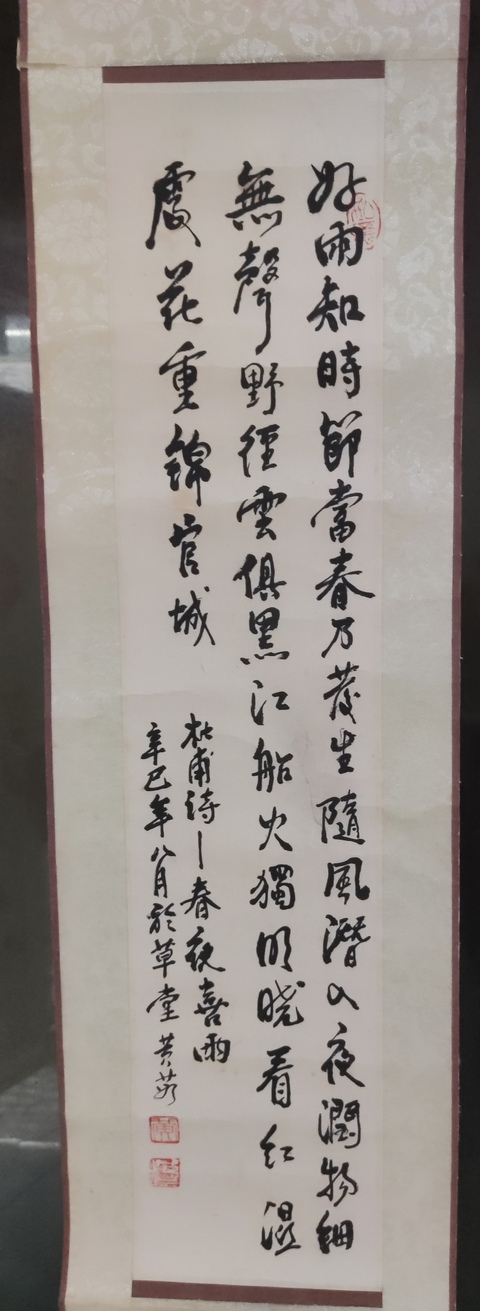 好雨知時節當春乃發生隨風潛入夜潤物細
無聲野徑雲俱黑江船火獨明曉看紅濕
處花重錦官城
杜甫詩—春夜喜雨
辛巳年八月於草堂黃